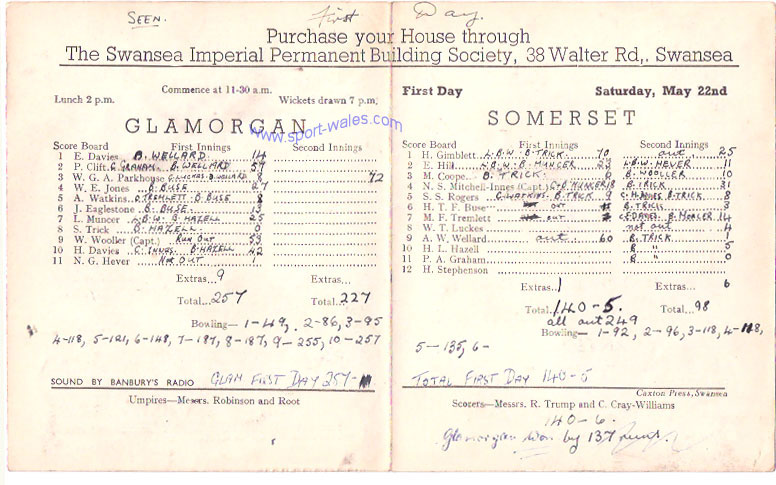 SEEN. First Day.
Purchase your House through
The Swansea Imperial Permanent Building Society, 38 Walter Rd,. Swansea
Commence at 11-30 a.m.
Lunch 2 p.m. Wickets drawn 7 p.m.
GLAMORGAN
www.sport-wales.com
Score Board First Innings Second Innings
1 E. Davies B. WELLARD 14
2 P. Clift C. GRAHAM. B. WELLARD 57
3 W. G. A. Parkhouse B. WELLARD 72
4 W. E. Jones B. BUSE 27
5 A. Watkins C. TREMLETT B BUSE
6 J. Eaglestone B. BUSE
7 L. Muncer B. HAZELL 25
8 S. Trick B. HAZELL. 0
9 W. Wooller (Capt.) RUN OUT 53
10 H. Davies B. HAZELL 42
11 N. G. Hever NOT OUT 1
Extras... 9 Extras...
Total... 257 Total... 227
Bowling— 1-49, 2-86, 3-95
4-118, 5-121, 6-148, 7-187, 8-187, 9-255, 10-257
SOUND BY BANBURY'S RADIO GLAM FIRST DAY 257-
Umpires—Messrs. Robinson and Root
First Day Saturday, May 22nd
SOMERSET
Score Board First Innings Second Innings
1 H. Gimblett L.B.W. B. TRICK 70 out 25
2 E. Hill L.B.W. B. MUNCER 23 L.B.W. HEVER 11
3 M. Coope B. TRICK 6 B. WOOLLER 10
4 N. S. Mitchell-Innes (Capt.) MUNCER 18 B. TRICK 31
5 S. S. Rogers C. WATKINS. B. TRICK 9 B. TRICK 8
6 H. T. F. Buse out B. TRICK 3
7 M. F. Tremlett out C. E. DAVIES. B. WOOLLER 14
8 W. T. Luckes not out 4
9 A. W. Wellard out 60 B. TRICK
10 H. L. Hazell B " 5
11 P. A. Graham B " 0
12 H. Stephenson
Extras... 1 Extras... 6
Total... 140-5. Total... 98
all out 249
Bowling— 1-92, 2-96, 3-118, 4-118,
5-135, 6-
TOTAL FIRST DAY 140-5
Caxton Press, Swansea
Scorers—Messrs. R. Trump and C. Cray-Williams
140-6.
Glamorgan won by 137 runs.